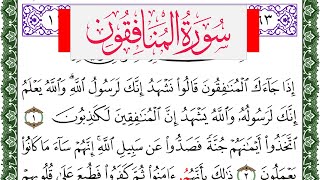 سورة المنافقون
إِذَا جَآءَكَ ٱلْمُنَٰفِقُونَ قَالُوا۟ نَشْهَدُ إِنَّكَ لَرَسُولُ ٱللَّهِ ۗ وَٱللَّهُ يَعْلَمُ
إِنَّكَ لَرَسُولُهُۥ وَٱللَّهُ يَشْهَدُ إِنَّ ٱلْمُنَٰفِقِينَ لَكَٰذِبُونَ ١
ٱتَّخَذُوٓا۟ أَيْمَٰنَهُمْ جُنَّةً فَصَدُّوا۟ عَن سَبِيلِ ٱللَّهِ ۚ إِنَّهُمْ سَآءَ مَا كَانُوا۟
يَعْمَلُونَ ٢ ذَٰلِكَ بِأَنَّهُمْ ءَامَنُوا۟ ثُمَّ كَفَرُوا۟ فَطُبِعَ عَلَىٰ قُلُوبِهِمْ